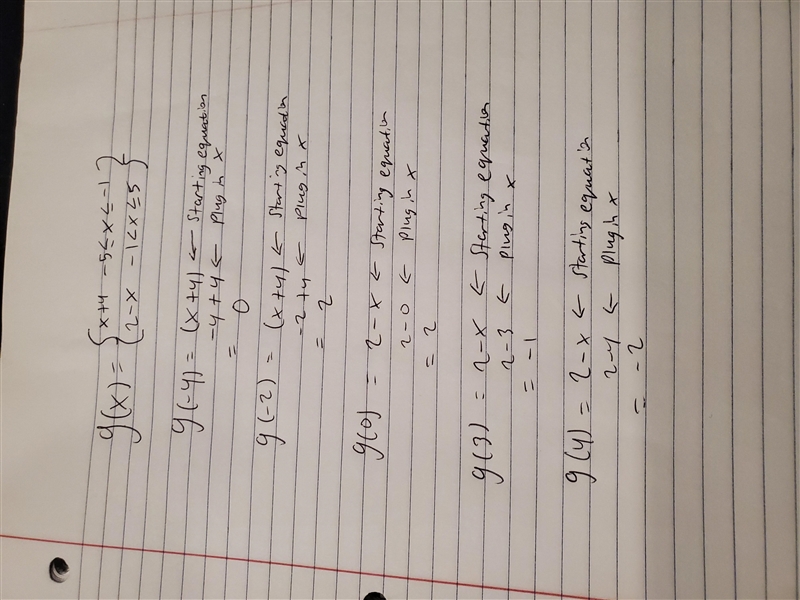 g(x) = { x+4 -5≤x≤-1 }
{ 2-x -1<x≤5 }
g(-4) = (x+4) ← Starting equation
-4+4 ← Plug in x
= 0
g(-2) = (x+4) ← Starting equation
-2+4 ← Plug in x
= 2
g(0) = 2-x ← Starting equation
2-0 ← Plug in x
= 2
g(3) = 2-x ← Starting equation
2-3 ← Plug in x
= -1
g(4) = 2-x ← Starting equation
2-4 ← Plug in x
= -2